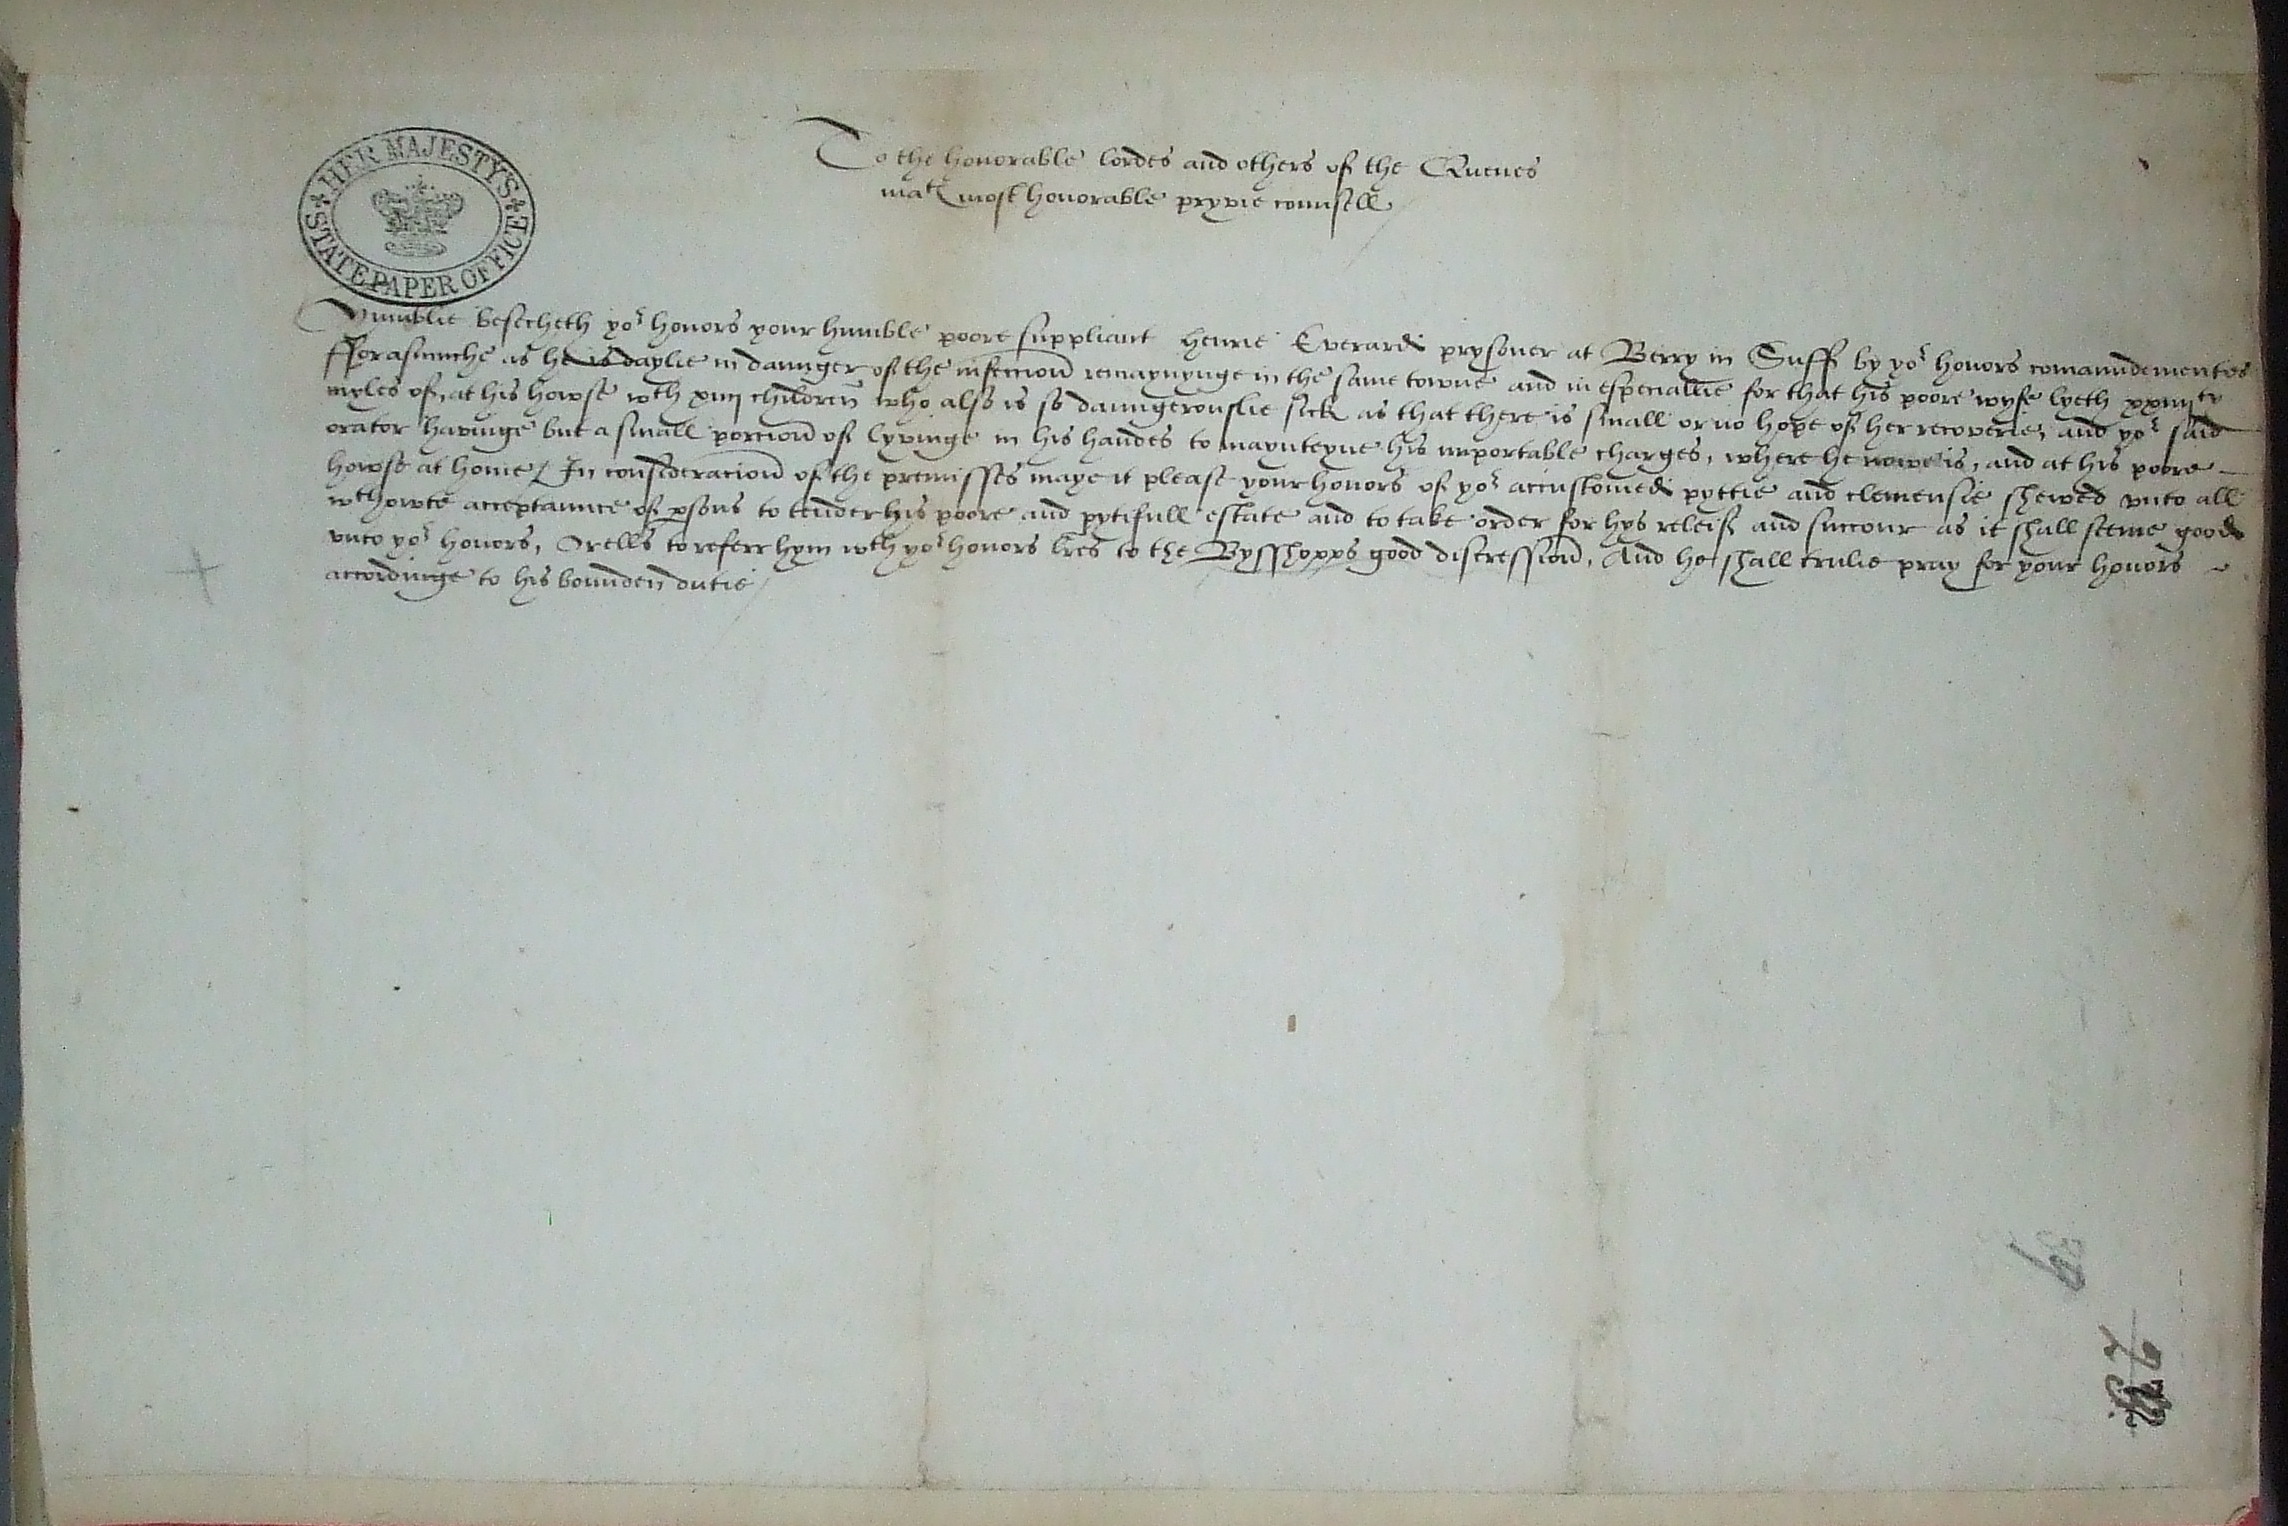 HER MAJESTYS
STATE PAPER OFFICE
To the honorable lordes and others of the Quenes
matꝭ most honorable pryvie counsell
Humblie besecheth yor honors your humble poore suppliant Henrie Everard prysoner at Berry in Suff by yor honors comaundementes
fforasmuche as he is daylie in daunger of the infeccion remaynynge in the same towne and in especiallie for that his poore wyfe lyeth xxiiijtie
myles of, at his howse wth xiiij children who also is so daungerouslie sick as that there is small or no hope of her recoverie, and yor said
orator havinge but a small porcion of lyvinge in his handes to maynteyne his importable charges, where he nowe is, and at his poore
howse at home / In consideracion of the premisses maye it please your honors of yor accustomed pyttie and clemensie shewed unto all
wthowte acceptaunce of psons to tender his poore and pytifull estate and to take order for hys releif and succour as it shall seeme good
unto yor honors, Orells to referr hym wth yor honors lres to the Bysshopps good discression, And he shall trulie pray for your honors
accordinge to his bounden dutie /